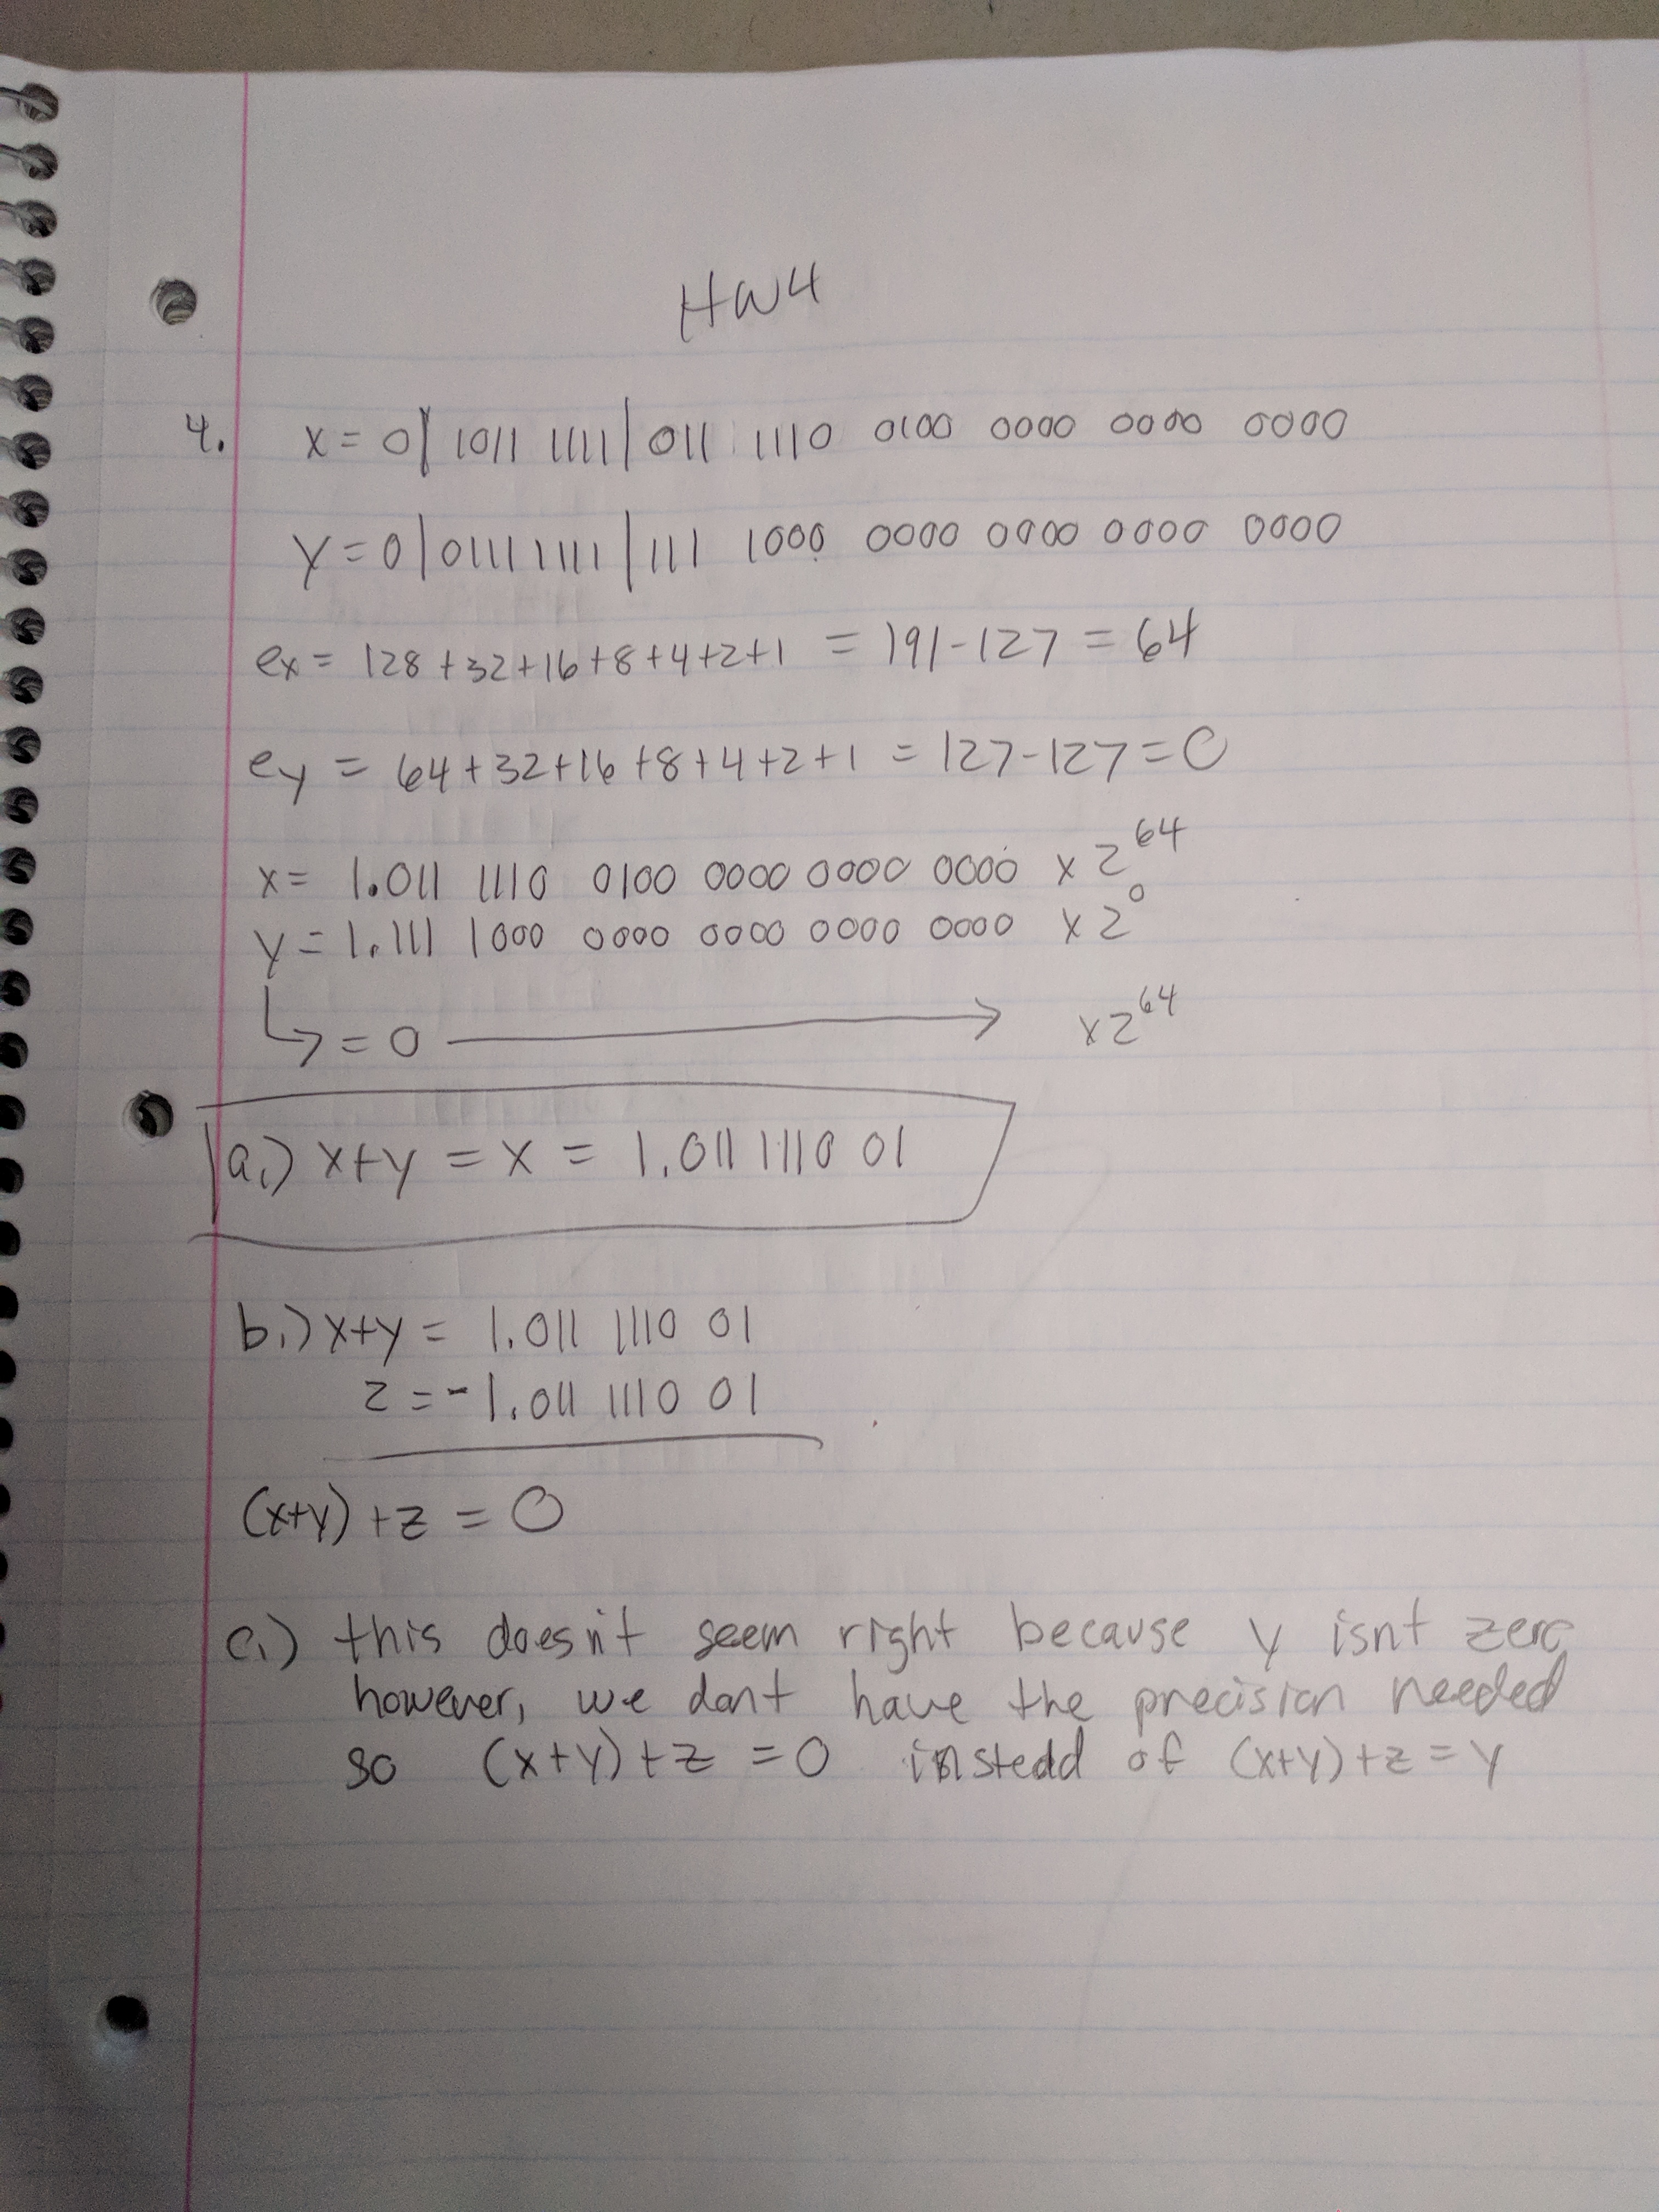 HW4
4. x = 0| 1011 1111| 011 1110 0100 0000 0000 0000
y = 0|0111 1111| 111 1000 0000 0000 0000 0000
ex = 128+32+16+8+4+2+1 = 191-127 = 64
ey = 64+32+16+8+4+2+1 = 127-127=0
x = 1.011 1110 0100 0000 0000 0000 x 2^64
y = 1.111 1000 0000 0000 0000 0000 x 2^0
↳ = 0 → x2^64
a.) x+y = x = 1.011 1110 01
b.) x+y = 1.011 1110 01
z = -1.011 1110 01
(x+y) +z = 0
c.) this doesn't seem right because y isnt zero
however, we dont have the precision needed
so (x+y)+z =0 instead of (x+y)+z=y